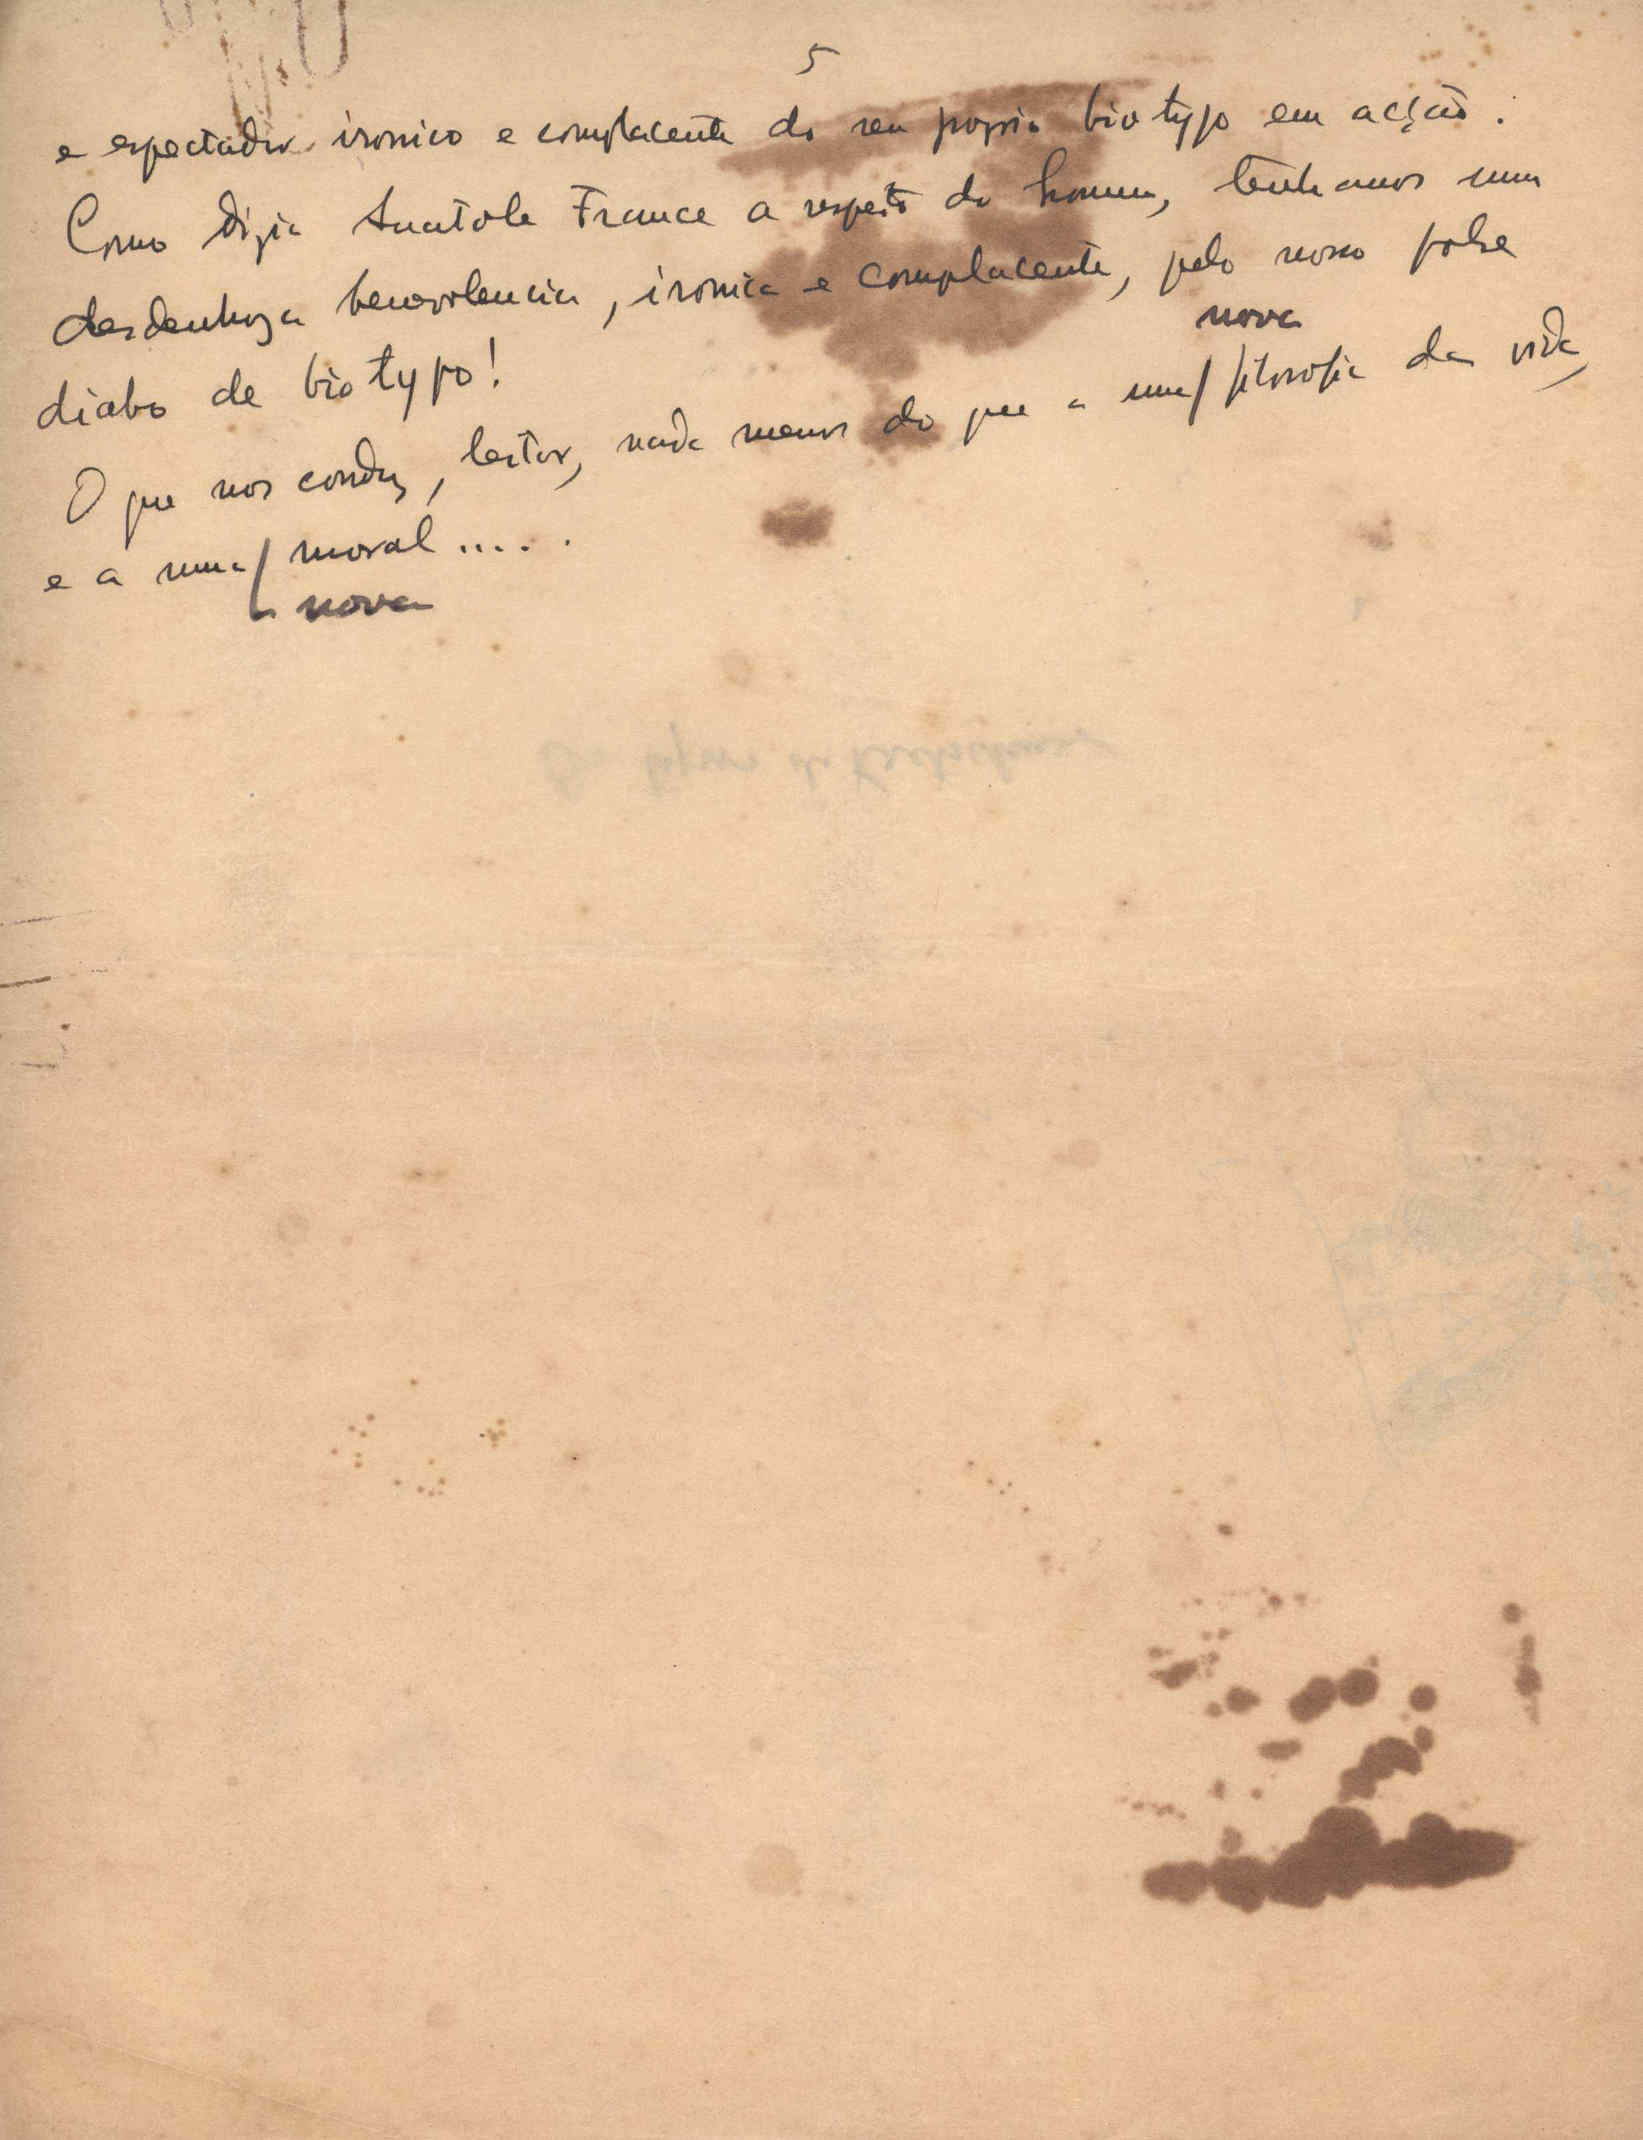 5
e espectador ironico e complacente do seu proprio biotypo em acção.
Como dizia Anatole France a respeito do homem, tenhamos uma
desdenhoza benevolencia, ironica e complacente, pelo nosso pobre
diabo de biotypo!
nova
O que nos conduz, leitor, nada menos do que a uma filosofia da vida,
e a uma moral.....
nova